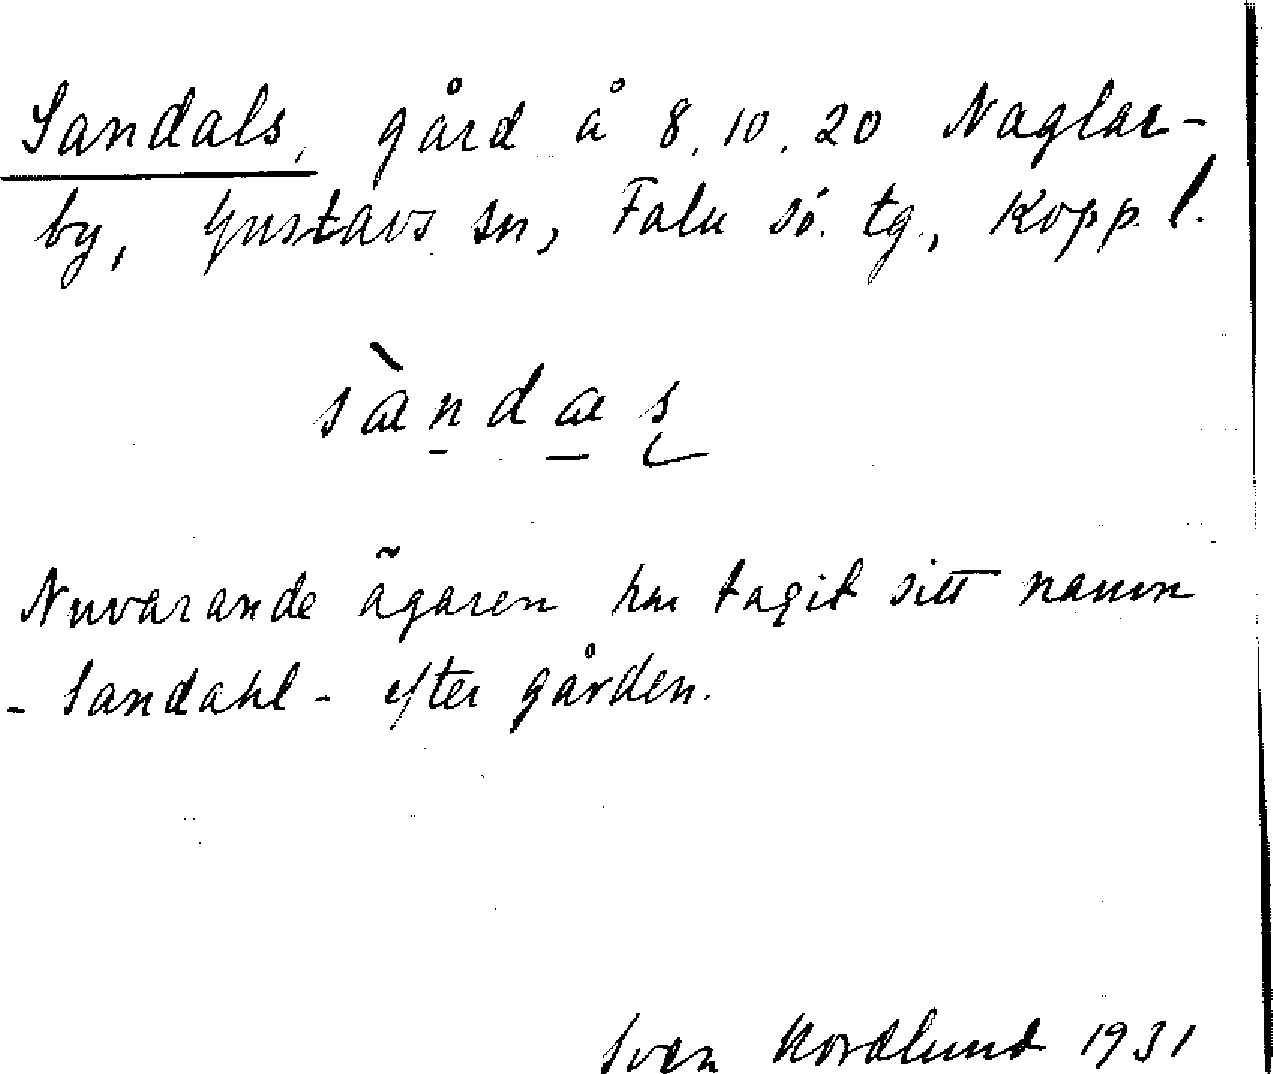 Sandals, gård å 8,10,20 Naglar-
by, Gustavs sn, Falu sö. tg., Kopp. l.
sàndas
Nuvarande ägaren har tagit sitt namn
- Sandahl - efter gården.
Sven Nordlund 1931